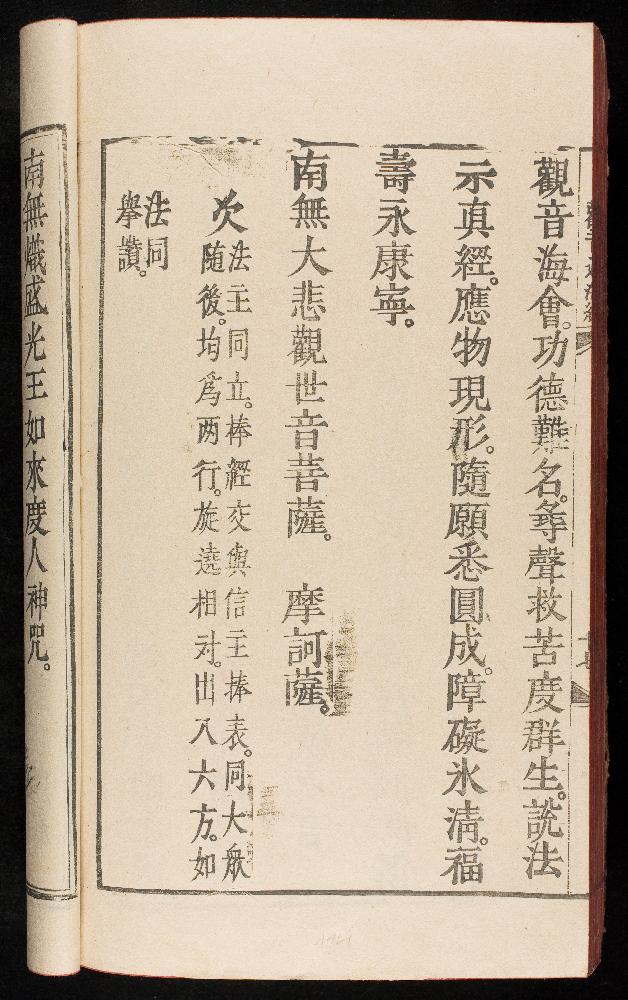 觀音海會。功德難名。尋聲救苦度群生。說法
示真經。應物現形。隨願悉圓成。障礙氷清。福
壽永康寧。
南無大悲觀世音菩薩。 摩訶薩。
次
法主同立。捧經交與信主捧表。同大眾
随後。均爲两行。旋遶相对。出入六方。如
法同
舉讚。
南無熾盛光王如來度人神咒。